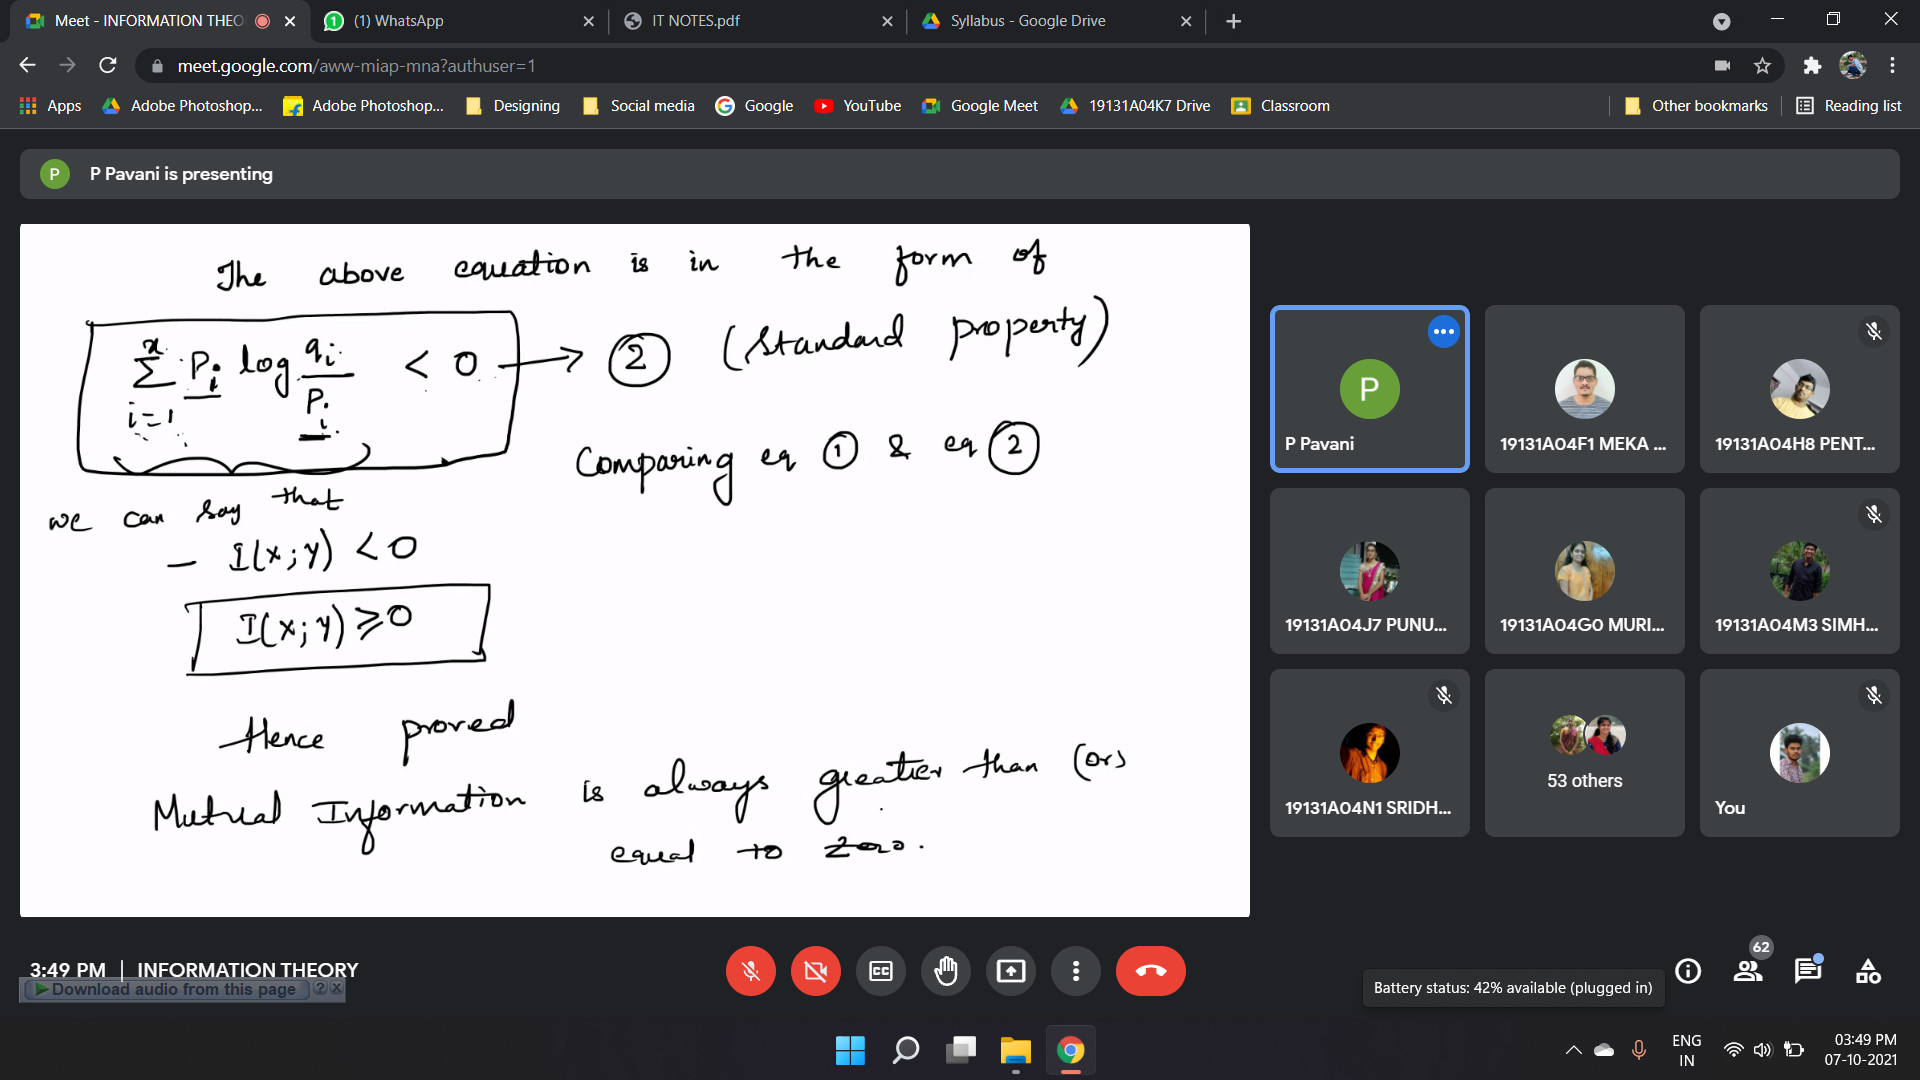 Meet - INFORMATION THEO
(1) WhatsApp
IT NOTES.pdf
Syllabus - Google Drive
meet.google.com/aww-miap-mna?authuser=1
Apps
Adobe Photoshop...
Adobe Photoshop...
Designing
Social media
Google
YouTube
Google Meet
19131A04K7 Drive
Classroom
Other bookmarks
Reading list
P
P Pavani is presenting
The above equation is in the form of
n
∑ Pi log qi/Pi < 0 → ② (Standard property)
i=1
Comparing eq ① & eq ②
we can say that
- I(x;y) < 0
I(x;y) ≥ 0
Hence proved
Mutual Information is always greater than (or)
equal to zero.
P
P Pavani
19131A04F1 MEKA ...
19131A04H8 PENT...
19131A04J7 PUNU...
19131A04G0 MURI...
19131A04M3 SIMH...
19131A04N1 SRIDH...
53 others
You
3:49 PM | INFORMATION THEORY
Download audio from this page ? X
CC
62
Battery status: 42% available (plugged in)
ENG
IN
03:49 PM
07-10-2021